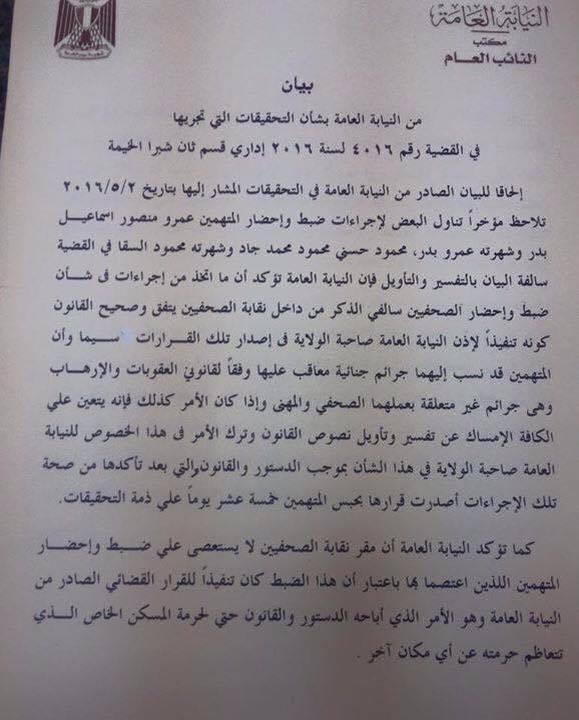 النيابة العامة
مكتب
النائب العام
بيان
من النيابة العامة بشأن التحقيقات التي تجريها
في القضية رقم ٤٠١٦ لسنة ٢٠١٦ إداري قسم ثان شبرا الخيمة
إلحاقا للبيان الصادر من النيابة العامة في التحقيقات المشار إليها بتاريخ ٢٠١٦/٥/٢
تلاحظ مؤخراً تناول البعض لإجراءات ضبط وإحضار المتهمين عمرو منصور اسماعيل
بدر وشهرته عمرو بدر، محمود حسني محمود محمد جاد وشهرته محمود السقا في القضية
سالفة البيان بالتفسير والتأويل فإن النيابة العامة تؤكد أن ما اتخذ من إجراءات فى شأن
ضبط وإحضار الصحفيين سالفي الذكر من داخل نقابة الصحفيين يتفق وصحيح القانون
كونه تنفيذاً لإذن النيابة العامة صاحبة الولاية فى إصدار تلك القرارات سيما وأن
المتهمين قد نسب إليهما جرائم جنائية معاقب عليها وفقاً لقانوني العقوبات والإرهاب
وهى جرائم غير متعلقة بعملهما الصحفي والمهنى وإذا كان الأمر كذلك فإنه يتعين علي
الكافة الإمساك عن تفسير وتأويل نصوص القانون وترك الأمر فى هذا الخصوص للنيابة
العامة صاحبة الولاية في هذا الشأن بموجب الدستور والقانون والتي بعد تأكدها من صحة
تلك الإجراءات أصدرت قرارها بحبس المتهمين خمسة عشر يوماً علي ذمة التحقيقات.
كما تؤكد النيابة العامة أن مقر نقابة الصحفيين لا يستعصى علي ضبط وإحضار
المتهمين اللذين اعتصما بها باعتبار أن هذا الضبط كان تنفيذاً للقرار القضائي الصادر من
النيابة العامة وهو الأمر الذي أباحه الدستور والقانون حتي لحرمة المسكن الخاص الذي
تتعاظم حرمته عن أي مكان آخر .